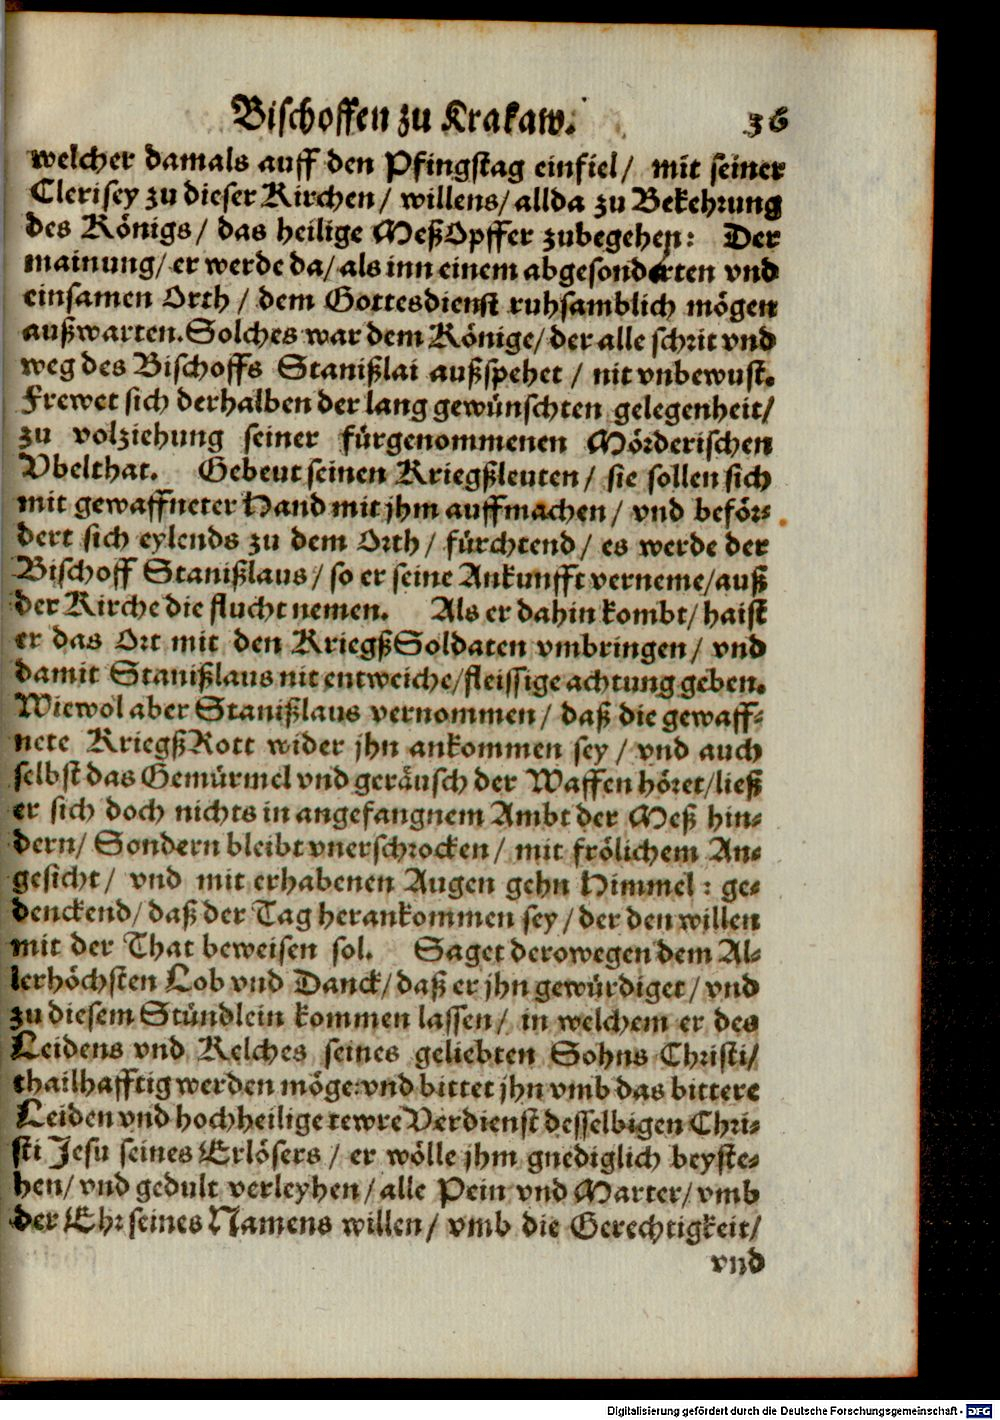 Bischoffen zu Krakaw. 36
welcher damals auff den Pfingstag einfiel/ mit seiner
Clerisey zu dieser Kirchen/ willens/ allda zu Bekehrung
des Königs/ das heilige MeßOpffer zubegehen: Der
mainung/ er werde da/ als inn einem abgesonderten vnd
einsamen Orth/ dem Gottesdienst ruhsamblich mögen
außwarten. Solches war dem Könige/ der alle schrit vnd
weg des Bischoffs Stanißlai außspehet/ nit vnbewust.
Frewet sich derhalben der lang gewünschten gelegenheit/
zu volziehung seiner fürgenommenen Mörderischen
Vbelthat. Gebeut seinen Kriegßleuten/ sie sollen sich
mit gewaffneter Hand mit jhm auffmachen/ vnd beför-
dert sich eylends zu dem Orth/ fürchtend/ es werde der
Bischoff Stanißlaus/ so er seine Ankunfft verneme/ auß
der Kirche die flucht nemen. Als er dahin kombt/ haist
er das Ort mit den KriegßSoldaten vmbringen/ vnd
damit Stanißlaus nit entweiche/ fleissige achtung geben.
Wiewol aber Stanißlaus vernommen/ daß die gewaff-
nete KriegßRott wider jhn ankommen sey/ vnd auch
selbst das Gemürmel vnd geräusch der Waffen höret/ ließ
er sich doch nichts in angefangnem Ambt der Meß hin-
dern/ Sondern bleibt vnerschrocken/ mit frölichem An-
gesicht/ vnd mit erhabenen Augen gehn Himmel: ge-
denckend/ daß der Tag herankommen sey/ der den willen
mit der That beweisen sol. Saget derowegen dem Al-
lerhöchsten Lob vnd Danck/ daß er jhn gewürdiget/ vnd
zu diesem Stündlein kommen lassen/ in welchem er des
Leidens vnd Kelches seines geliebten Sohns Christi/
thailhafftig werden möge: vnd bittet jhn vmb das bittere
Leiden vnd hochheilige tewre Verdienst desselbigen Chri-
sti Jesu seines Erlösers/ er wölle jhm gnediglich beyste-
hen/ vnd gedult verleyhen/ alle Pein vnd Marter/ vmb
der Ehr seines Namens willen/ vmb die Gerechtigkeit/
vnd
Digitalisierung gefördert durch die Deutsche Forschungsgemeinschaft - DFG